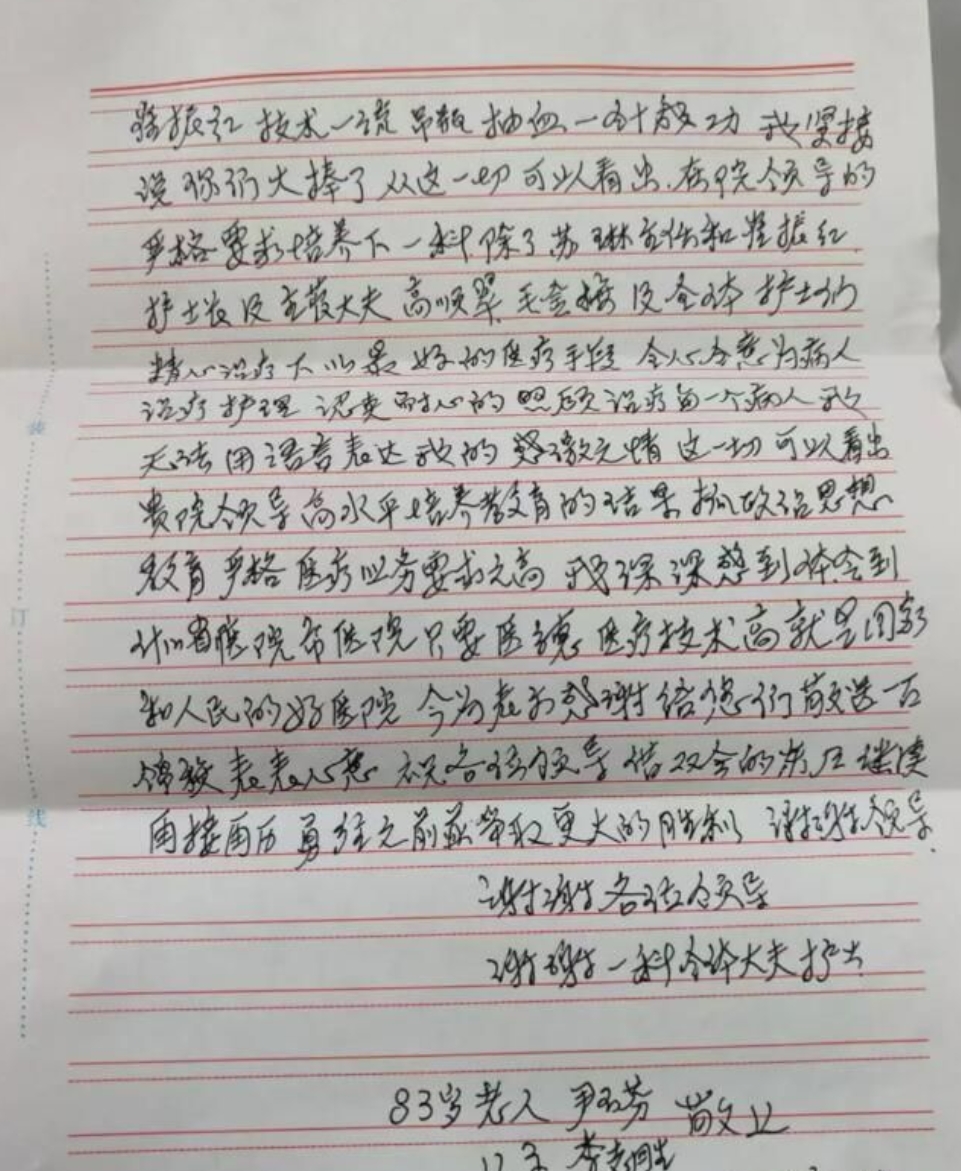 振红 技术一流 吊瓶 抽血一 成功 我紧接
说 你们太棒了 从这一切可以看出 在院领导的
严格要求培养下 一科除了苏琳主任和 振红
护士长及主管大夫 高顺翠 毛 及全体护士们
精心治疗下 以最好的医疗手段 全心全意为病人
治疗护理 认真耐心的照顾治疗每一个病人 我
无法用语言表达我的感激之情 这一切可以看出
贵院领导高水平培养教育的结果 抓政治思想
教育 严格医疗业务要求之高 我深深感到体会到
省医院市医院 只要医德 医疗技术高就是国家
和人民的好医院 今为表示感谢 给您们敬送一
锦旗 表表心意 祝各位领导 借双会的东风 继续
再接再厉 勇往 前 取更大的胜利 谢谢领导.
谢谢各位领导
谢谢一科全体大夫护士
83岁老人 尹 芬 敬上
装
订
线